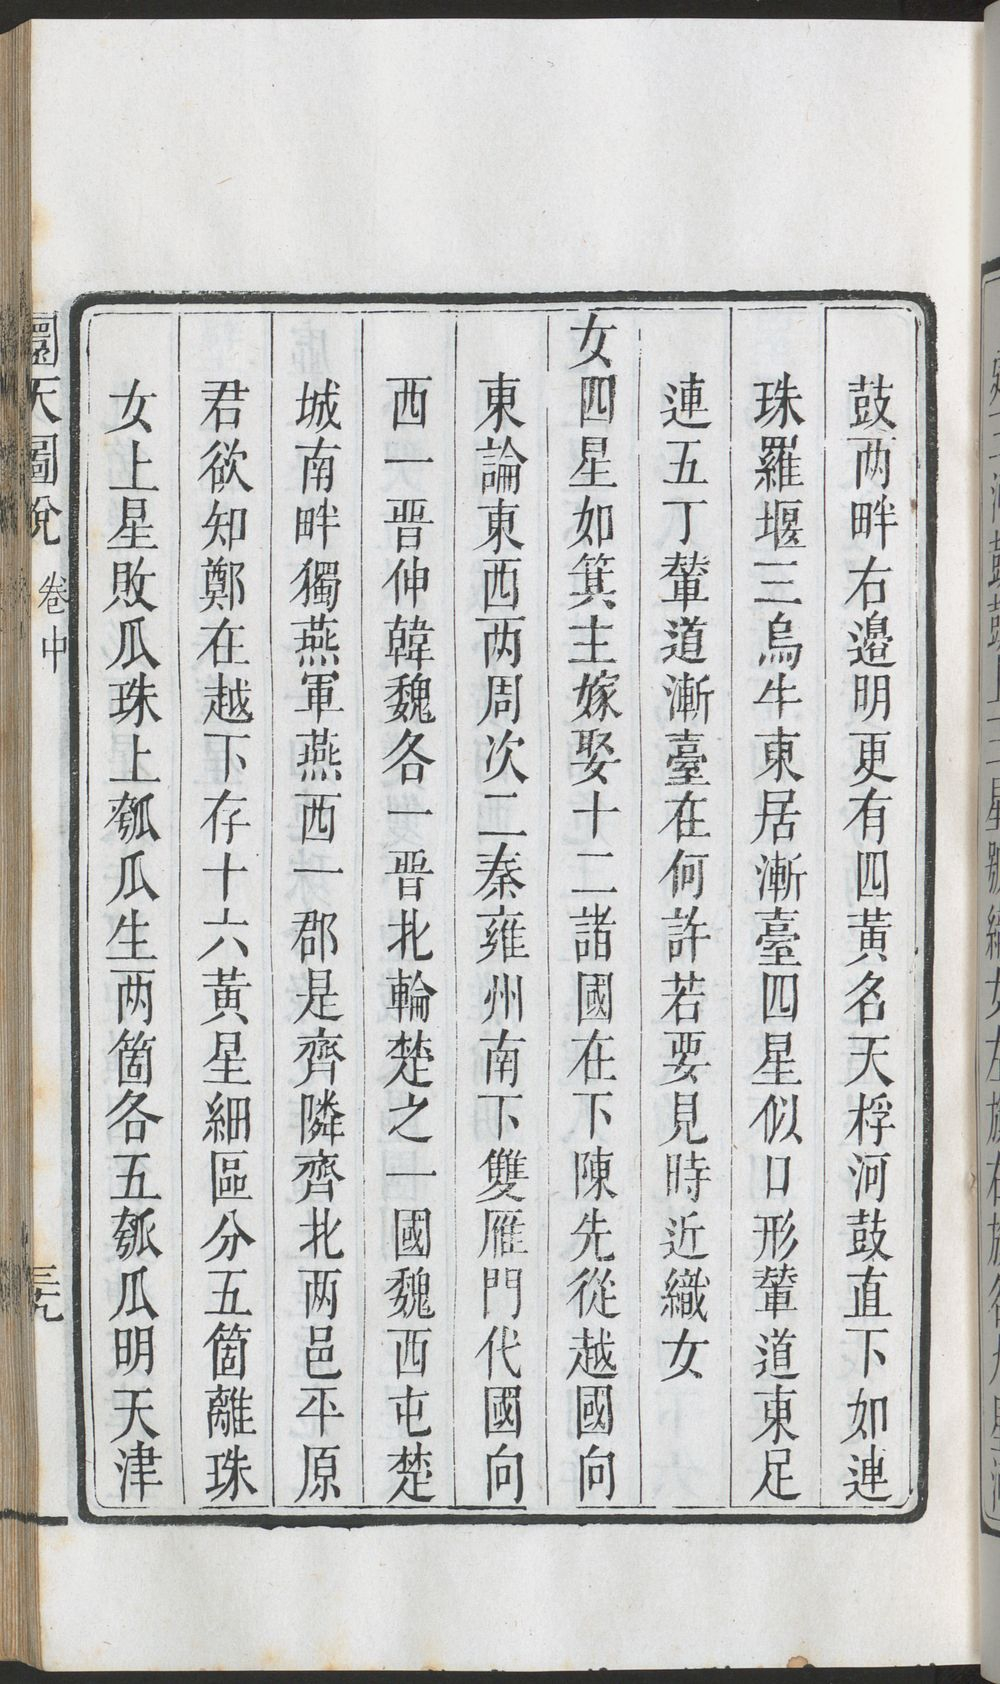 鼓两畔右邉明更有四黃名天桴河鼓直下如連
珠羅堰三烏牛東居漸臺四星似口形輦道東足
連五丁輦道漸臺在何許若要見時近織女
女四星如箕主嫁娶十二諸國在下陳先從越國向
東論東西两周次二秦雍州南下雙雁門代國向
西一晋伸韓魏各一晋北輪楚之一國魏西屯楚
城南畔獨燕軍燕西一郡是齊隣齊北两邑平原
君欲知鄭在越下存十六黃星細區分五箇離珠
女上星敗瓜珠上瓠瓜生两箇各五瓠瓜明天津
圜天圖說 卷中 三九